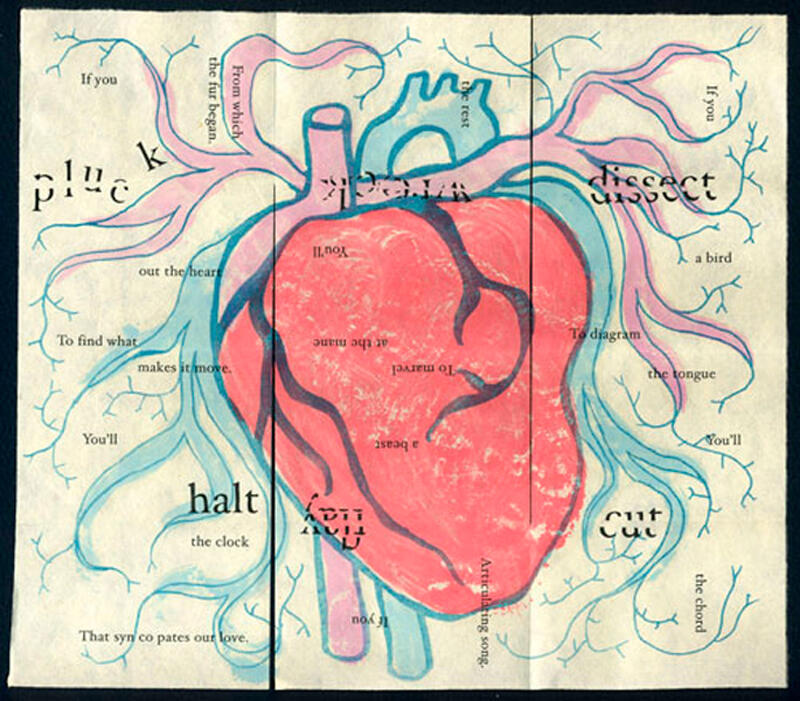 If you
pluck
out the heart
To find what
makes it move.
You'll
halt
the clock
That syn co pates our love.
If you
flay
a beast
To marvel
at the mane
You'll
wreck
the rest
From which
the fur began.
If you
dissect
a bird
To diagram
the tongue
You'll
cut
the chord
Articulating song.